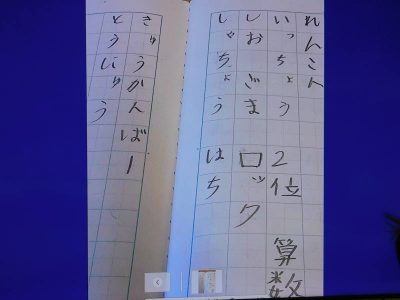 れんこん
いっちょう 2位 算数
しおざま ロック
しゃちょう はち
さゅうかんばー
とうにゅう